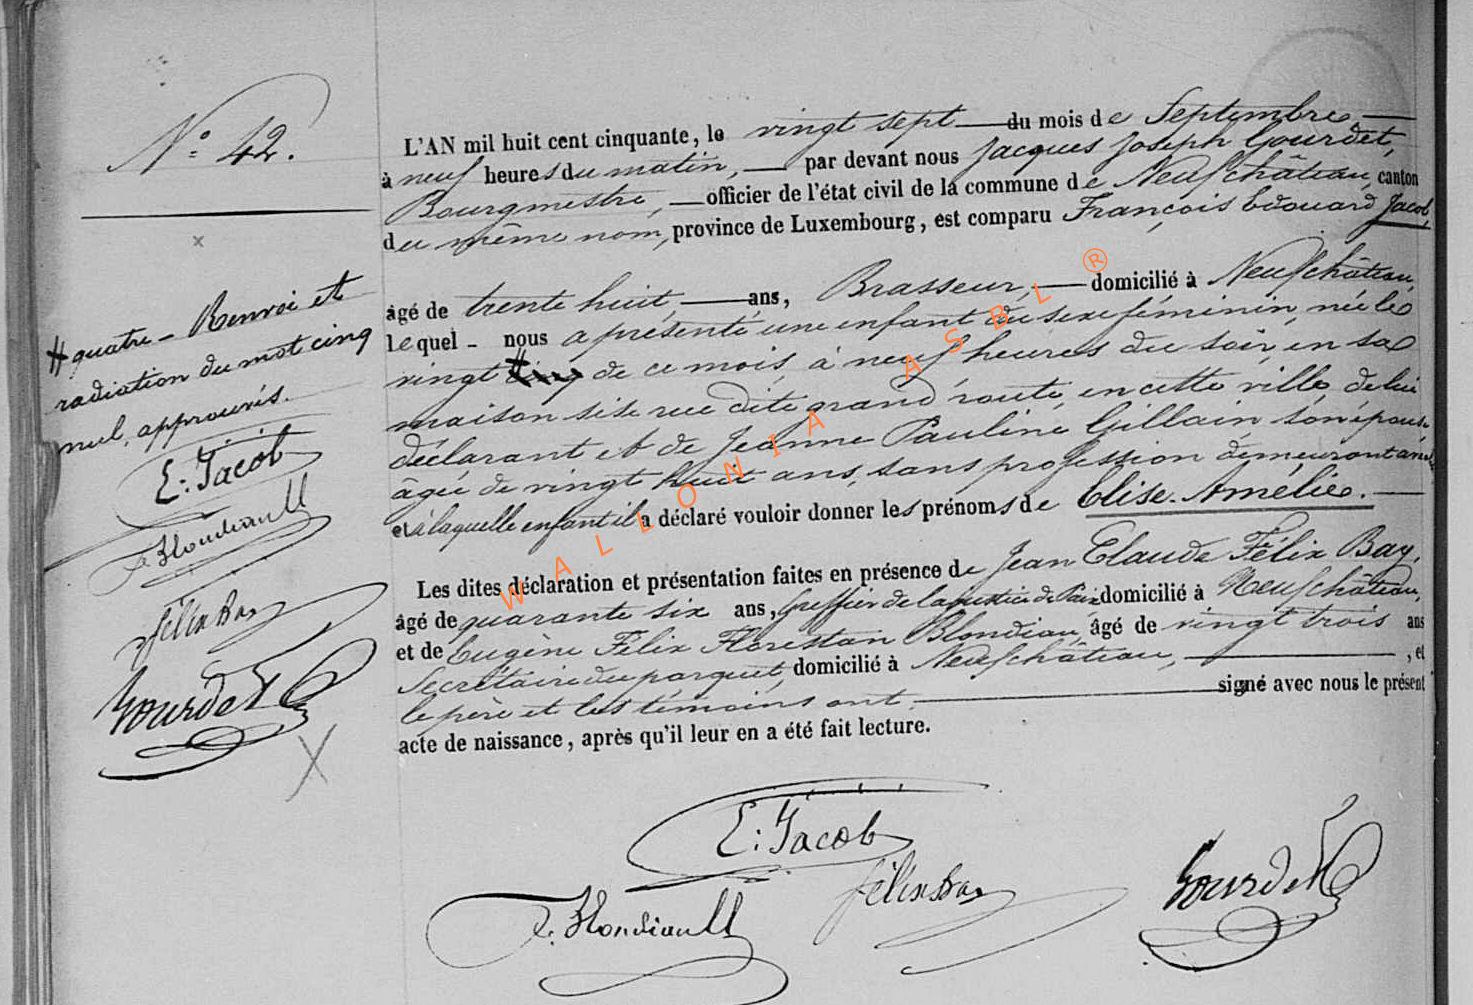 N° 42.
L'AN mil huit cent cinquante, le vingt sept du mois de Septembre
à neuf heures du matin, par devant nous Jacques Joseph Gourdet,
Bourgmestre, officier de l'état civil de la commune de Neufchâteau, canton
du même nom, province de Luxembourg, est comparu François Edouard Jacob,
âgé de trente huit ans, Brasseur, domicilié à Neufchâteau,
lequel nous a présenté une enfant du sexe féminin, née le
vingt # cinq de ce mois, à neuf heures du soir, en sa
maison sise rue dite grand'route, en cette ville, de lui
déclarant et de Jeanne Pauline Gillain son épouse
âgée de vingt huit ans, sans profession demeurant
et à laquelle enfant il a déclaré vouloir donner les prénoms de Elise Amélie.
Les dites déclaration et présentation faites en présence de Jean Claude Félix Bay,
âgé de quarante six ans, Greffier de la justice de Paix domicilié à Neufchâteau,
et de Eugène Félix Florestan Blondiau, âgé de vingt trois ans
Secrétaire du parquet, domicilié à Neufchâteau, , et
le père et les témoins ont signé avec nous le présent
acte de naissance, après qu'il leur en a été fait lecture.
# quatre - Renvoi et
radiation du mot cinq
nul, approuvés.
E. Jacob
F. Blondiau
Félix Bay
Gourdet
E. Jacob
F. Blondiau
Félix Bay
Gourdet
WALLONIA ASBL ®